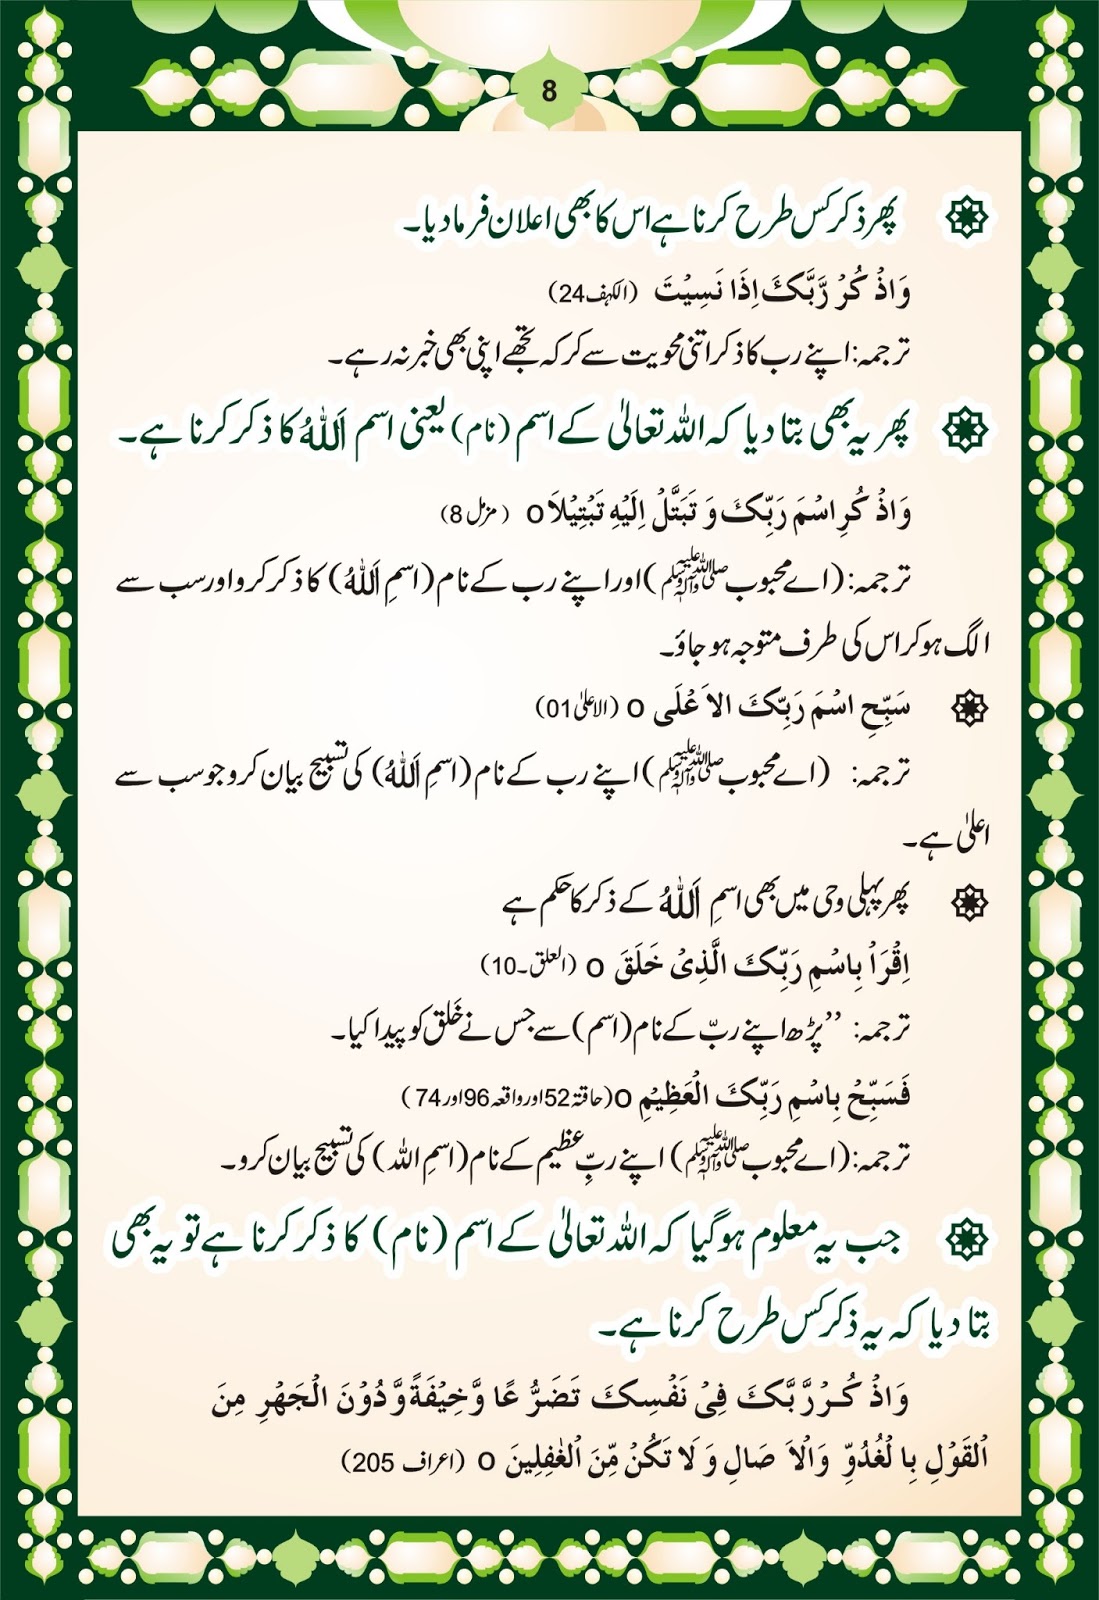 8
پھر ذکر کس طرح کرنا ہے اس کا بھی اعلان فرمادیا۔
وَاذۡ کُرۡ رَّبَّکَ اِذَا نَسِیۡتَ (الکہف 24)
ترجمہ: اپنے رب کا ذکر اتنی محویت سے کر کہ تجھے اپنی بھی خبر نہ رہے۔
پھر یہ بھی بتا دیا کہ اللہ تعالیٰ کے اسم (نام) یعنی اسم اَللّٰہُ کا ذکر کرنا ہے۔
وَاذۡ کُرِ اسۡمَ رَبِّکَ وَ تَبَتَّلۡ اِلَیۡہِ تَبۡتِیۡلَا o (مزمل 8)
ترجمہ: (اے محبوب صلی اللہ علیہ وآلہ وسلم) اور اپنے رب کے نام (اسمِ اَللّٰہُ) کا ذکر کرو اور سب سے
الگ ہو کر اس کی طرف متوجہ ہو جاؤ۔
سَبِّحِ اسۡمَ رَبِّکَ الاَ عۡلَی o (الاعلیٰ 01)
ترجمہ: (اے محبوب صلی اللہ علیہ وآلہ وسلم) اپنے رب کے نام (اسمِ اَللّٰہُ) کی تسبیح بیان کرو جو سب سے
اعلیٰ ہے۔
پھر پہلی وحی میں بھی اسمِ اَللّٰہُ کے ذکر کا حکم ہے
اِقۡرَاۡ بِاسۡمِ رَبِّکَ الَّذِیۡ خَلَقَ o (العلق۔10)
ترجمہ: ’’پڑھ اپنے ربّ کے نام (اسم) سے جس نے خَلق کو پیدا کیا۔
فَسَبِّحۡ بِاسۡمِ رَبِّکَ الۡعَظِیۡمِ o (حاقۃ 52 اور واقعہ 96 اور 74)
ترجمہ: (اے محبوب صلی اللہ علیہ وآلہ وسلم) اپنے ربِّ عظیم کے نام (اسمِ اللہ) کی تسبیح بیان کرو۔
جب یہ معلوم ہو گیا کہ اللہ تعالیٰ کے اسم (نام) کا ذکر کرنا ہے تو یہ بھی
بتا دیا کہ یہ ذکر کس طرح کرنا ہے۔
وَاذۡ کُرۡ رَّبَّکَ فِیۡ نَفۡسِکَ تَضَرُّ عًا وَّ خِیۡفَۃً وَّ دُوۡنَ الۡجَھۡرِ مِنَ
الۡقَوۡلِ بِا لۡغُدُوِّ وَالۡاَ صَالِ وَ لَا تَکُنۡ مِّنَ الۡغٰفِلِیۡنَ o (اعراف 205)